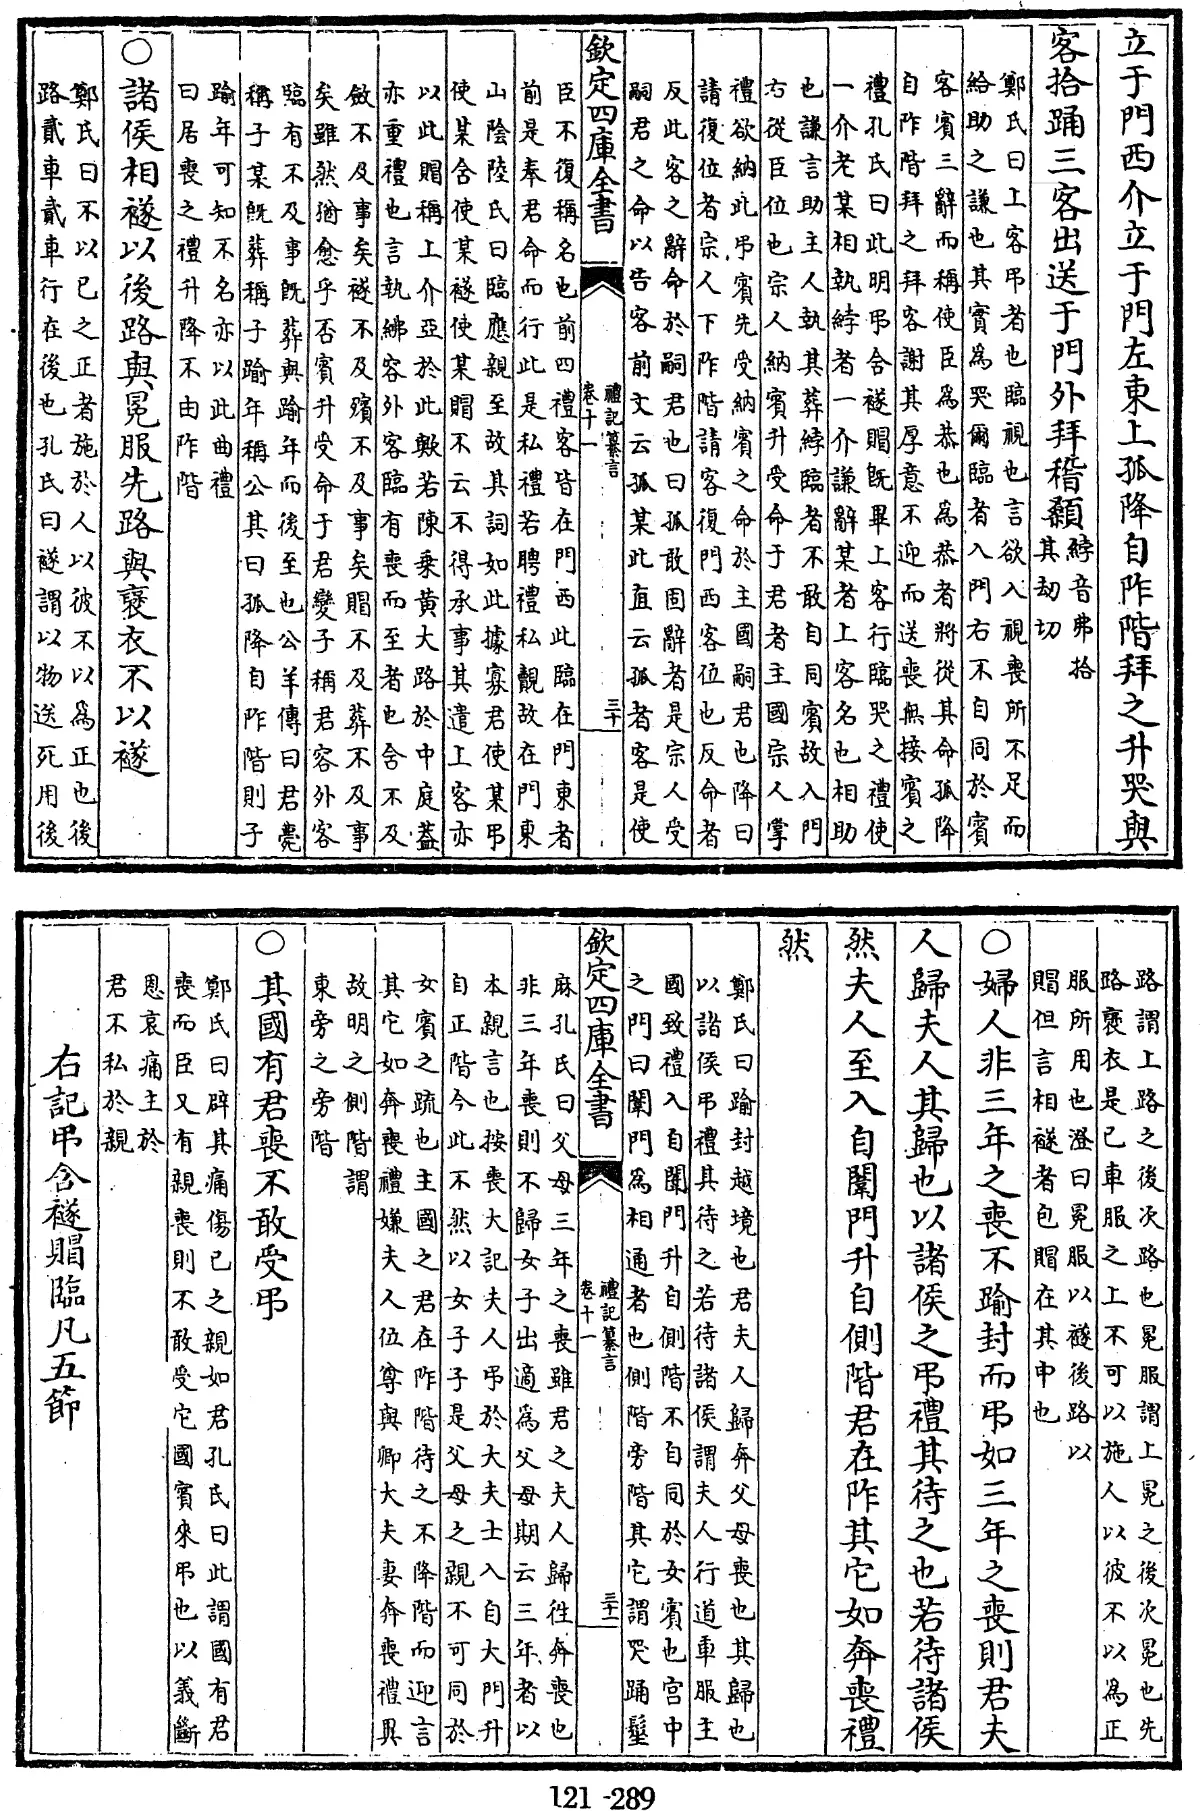 立于門西介立于門左東上孤降自阼階拜之升哭與
客拾踊三客出送于門外拜稽顙綍音弗拾
其劫切
鄭氏曰上客弔者也臨視也言欲入視喪所不足而
給助之謙也其實為哭爾臨者入門右不自同於賓
客賓三辭而稱使臣為恭也為恭者將從其命孤降
自阼階拜之拜客謝其厚意不迎而送喪無接賓之
禮孔氏曰此明弔含襚賵既畢上客行臨哭之禮使
一介老某相執綍者一介謙辭某者上客名也相助
也謙言助主人執其葬綍臨者不敢自同賓故入門
右從臣位也宗人納賓升受命于君者主國宗人掌
禮欲納此弔賓先受納賓之命於主國嗣君也降曰
請復位者宗人下阼階請客復門西客位也反命者
反此客之辭命於嗣君也曰孤敢固辭者是宗人受
嗣君之命以告客前文云孤某此直云孤者客是使
欽定四庫全書
禮記纂言
卷十一
三十
臣不復稱名也前四禮客皆在門西此臨在門東者
前是奉君命而行此是私禮若聘禮私覿故在門東
山陰陸氏曰臨應親至故其詞如此據寡君使某弔
使某含使某襚使某賵不云不得承事其遣上客亦
以此賵稱上介亞於此歟若陳乗黃大路於中庭蓋
亦重禮也言執綍容外客臨有喪而至者也含不及
斂不及事矣襚不及殯不及事矣賵不及葬不及事
矣雖然猶愈乎否賓升受命于君變子稱君容外客
臨有不及事既葬與踰年而後至也公羊傳曰君薨
稱子某既葬稱子踰年稱公其曰孤降自阼階則子
踰年可知不名亦以此曲禮
曰居喪之禮升降不由阼階
○諸侯相襚以後路與冕服先路與襃衣不以襚
鄭氏曰不以已之正者施於人以彼不以為正也後
路貳車貳車行在後也孔氏曰襚謂以物送死用後
路謂上路之後次路也冕服謂上冕之後次冕也先
路襃衣是已車服之上不可以施人以彼不以為正
服所用也澄曰冕服以襚後路以
賵但言相襚者包賵在其中也
○婦人非三年之喪不踰封而弔如三年之喪則君夫
人歸夫人其歸也以諸侯之弔禮其待之也若待諸侯
然夫人至入自闈門升自側階君在阼其它如奔喪禮
然
鄭氏曰踰封越境也君夫人歸奔父母喪也其歸也
以諸侯弔禮其待之若待諸侯謂夫人行道車服主
國致禮入自闈門升自側階不自同於女賓也宮中
之門曰闈門為相通者也側階旁階其它謂哭踊髽
欽定四庫全書
禮記纂言
卷十一
三十一
麻孔氏曰父母三年之喪雖君之夫人歸徃奔喪也
非三年喪則不歸女子出適為父母期云三年者以
本親言也按喪大記夫人弔於大夫士入自大門升
自正階今此不然以女子子是父母之親不可同於
女賓之疏也主國之君在阼階待之不降階而迎言
其它如奔喪禮嫌夫人位尊與卿大夫妻奔喪禮異
故明之側階謂
東旁之旁階
○其國有君喪不敢受弔
鄭氏曰辟其痛傷已之親如君孔氏曰此謂國有君
喪而臣又有親喪則不敢受它國賓來弔也以義斷
恩哀痛主於
君不私於親
右記弔含襚賵臨凡五節
121-289